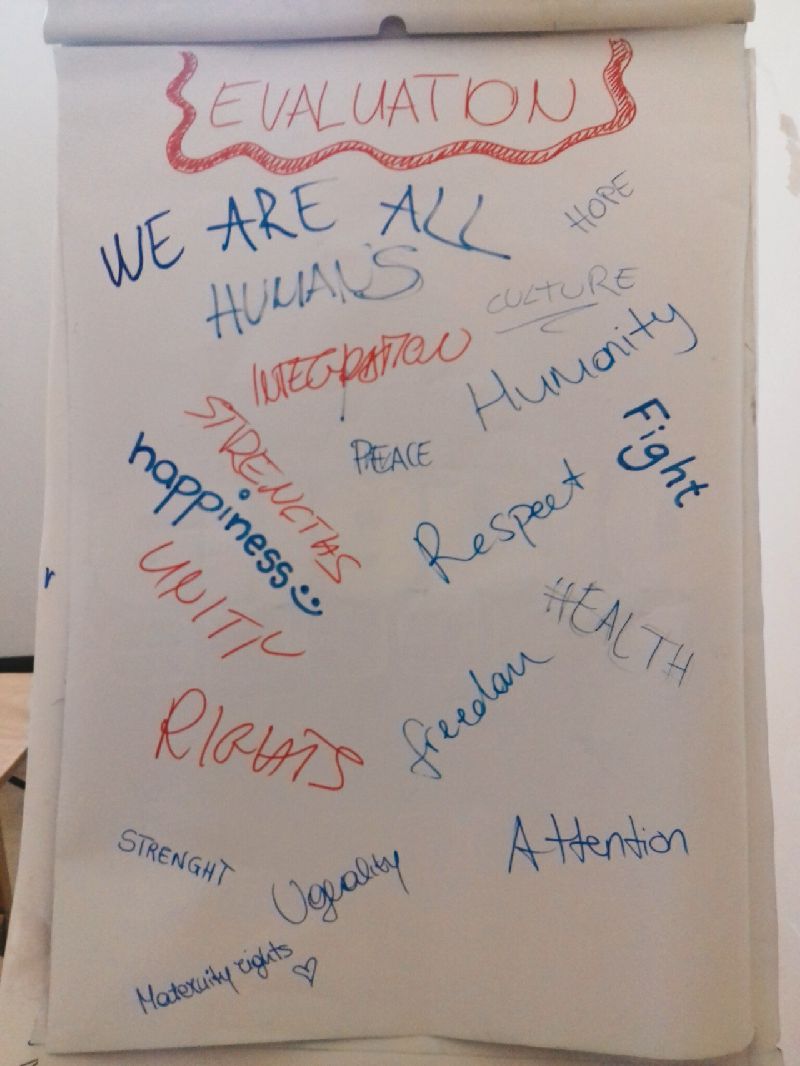 EVALUATION
WE ARE ALL
HUMANS
HOPE
CULTURE
INTEGRATION
Humanity
STRENGTHS
PEACE
Fight
happiness
Respect
UNITY
HEALTH
freedom
RIGHTS
Attention
STRENGHT
Maternity rights